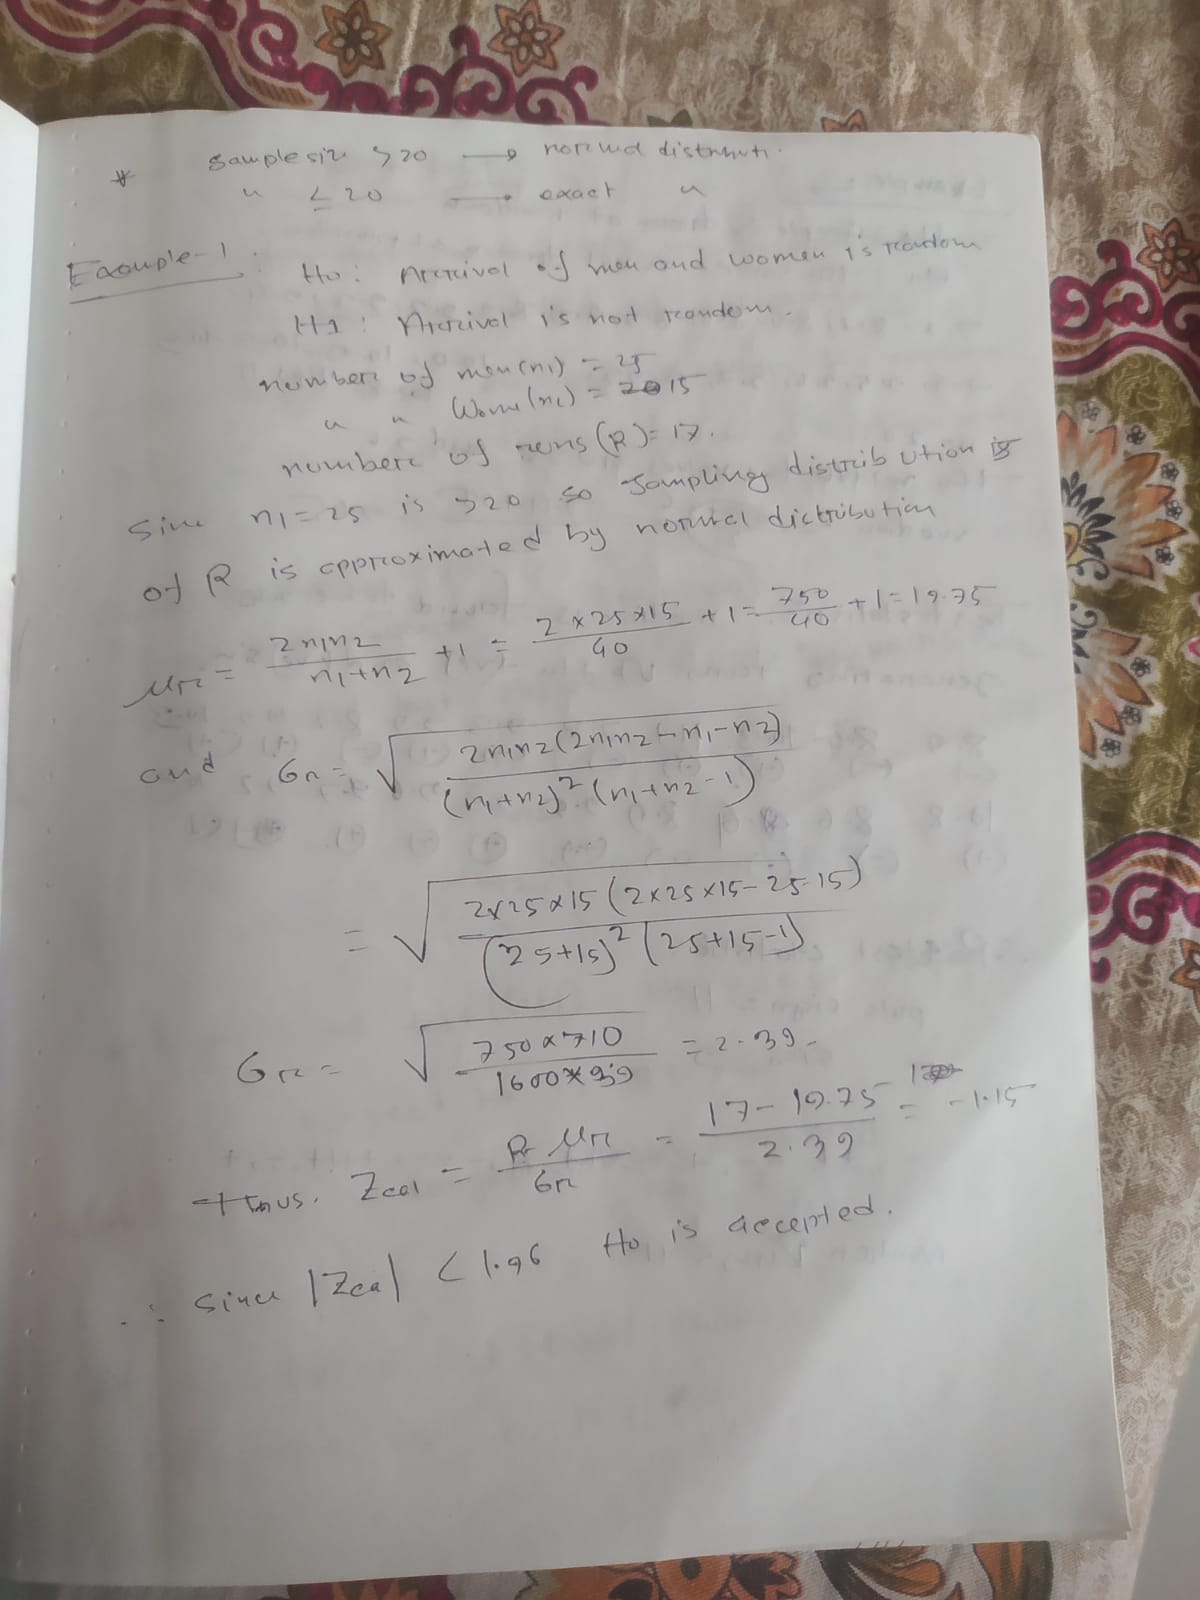 * Sample size >20 → normal distributi.
" ≤ 20 → exact "
Example-1 : H0 : Arrival of men and women is random
H1 : Arrival is not random.
number of men (n1) = 25
" " Wome (n2) = 15
number of runs (R) = 17.
Since n1 = 25 is >20 so Sampling distribution is
of R is approximated by normal dictribution
μr = 2n1n2 / n1+n2 + 1 = 2 × 25 × 15 / 40 + 1 = 750 / 40 + 1 = 19.75
and σr = √ 2n1n2 (2n1n2 - n1 - n2) / (n1+n2)² (n1+n2-1)
= √ 2×25×15 (2×25×15-25-15) / (25+15)² (25+15-1)
σr = √ 750×710 / 1600×39 = 2.39.
Thus. Zcal = R-μr / σr = 17-19.75 / 2.39 = -1.15
∴ Since |Zca| < 1.96 H0 is accepted.